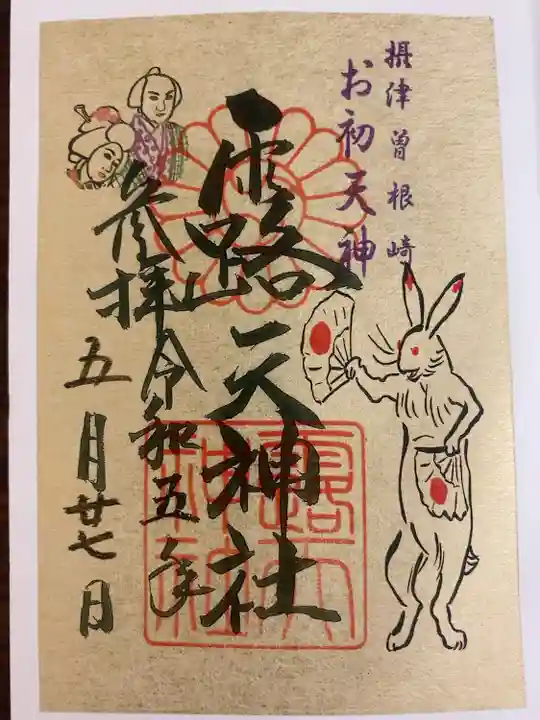 摂津曽根崎
お初天神
露天神社
参拝
令和五年
五月廿七日
露天
神社